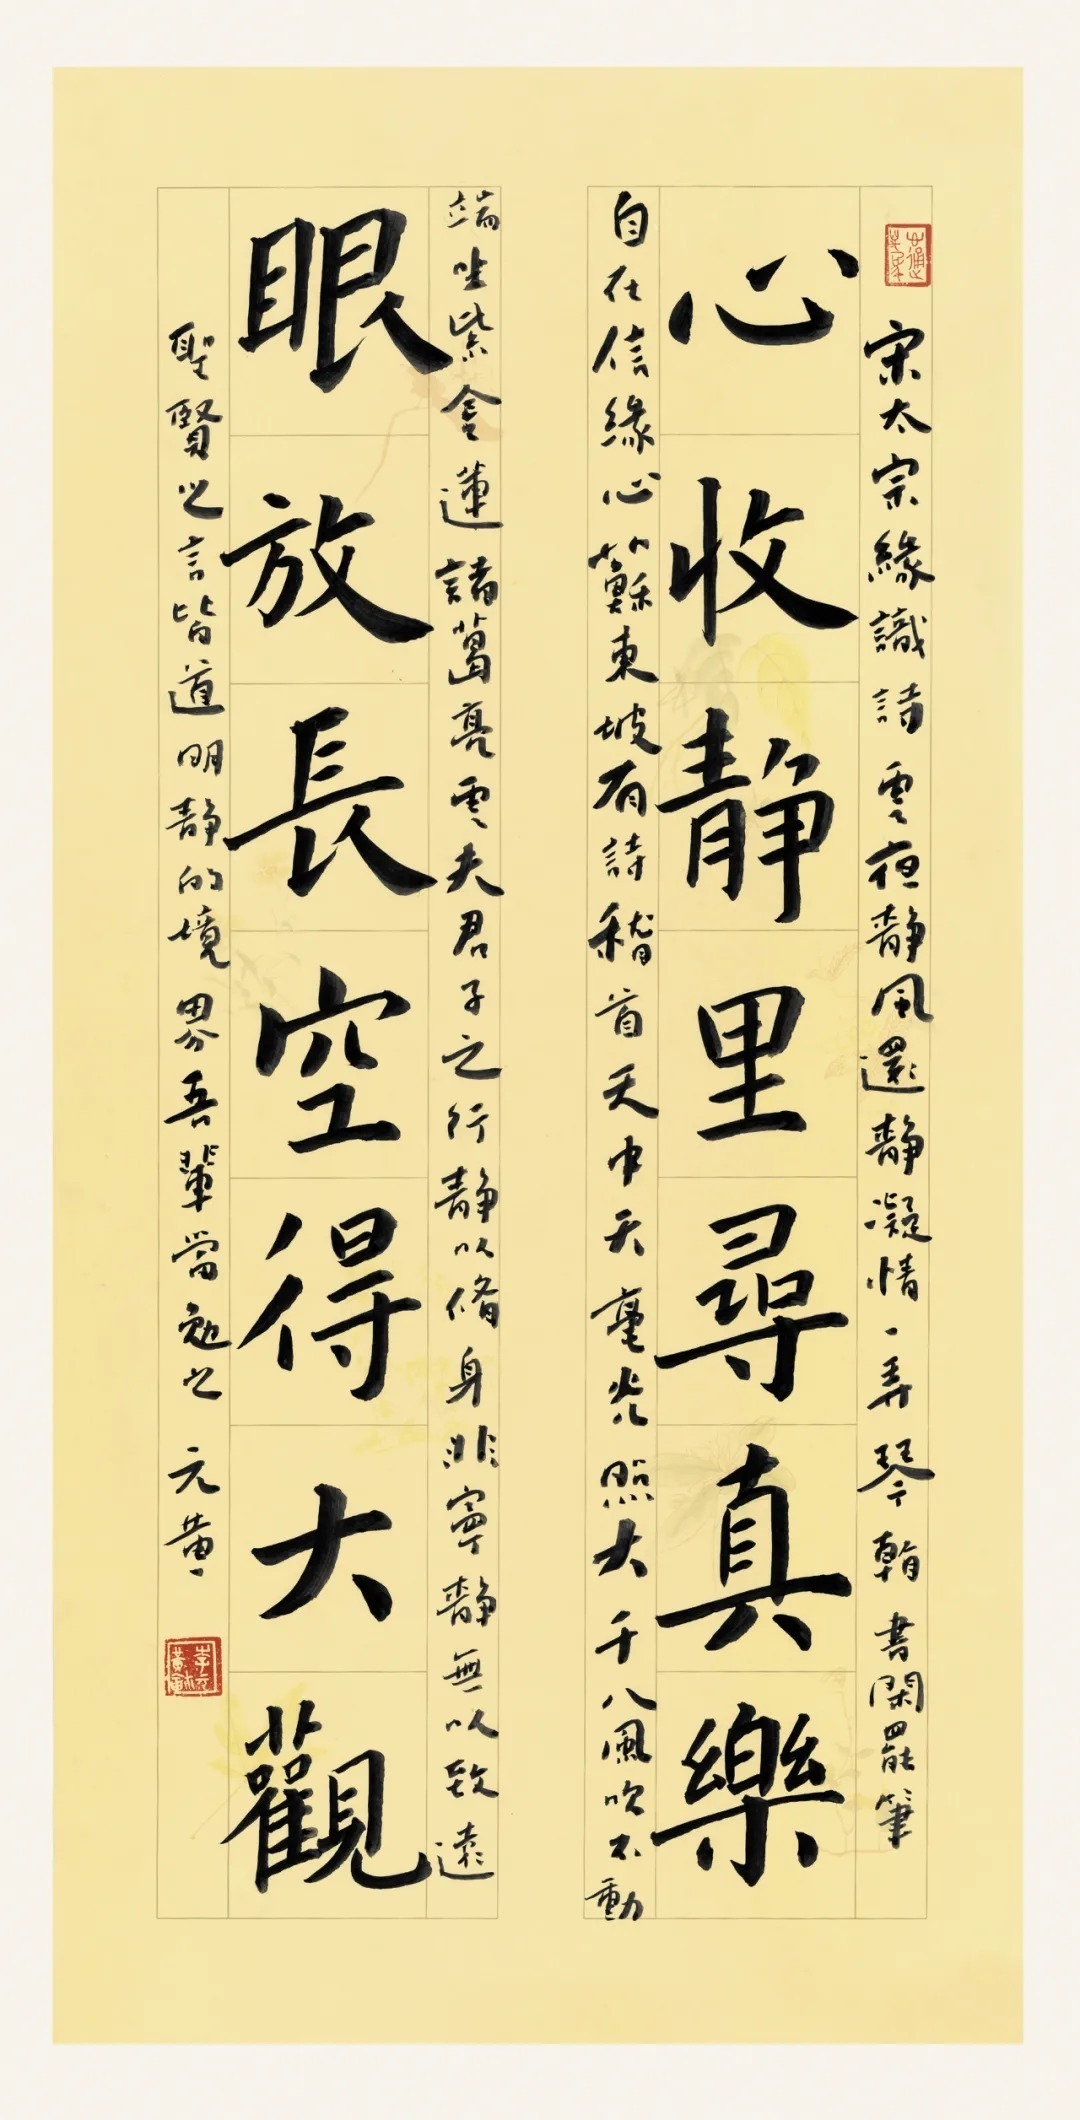 宋太宗緣識詩雲夜靜風還靜凝情一弄琴翰書閑罷筆
心收靜里尋真樂
自在信緣心蘇東坡有詩稽首天中天毫光照大千八風吹不動
端坐紫金蓮諸葛亮雲夫君子之行靜以脩身非寧靜無以致遠
眼放長空得大觀
聖賢之言皆道明靜的境界吾輩當勉之元黄